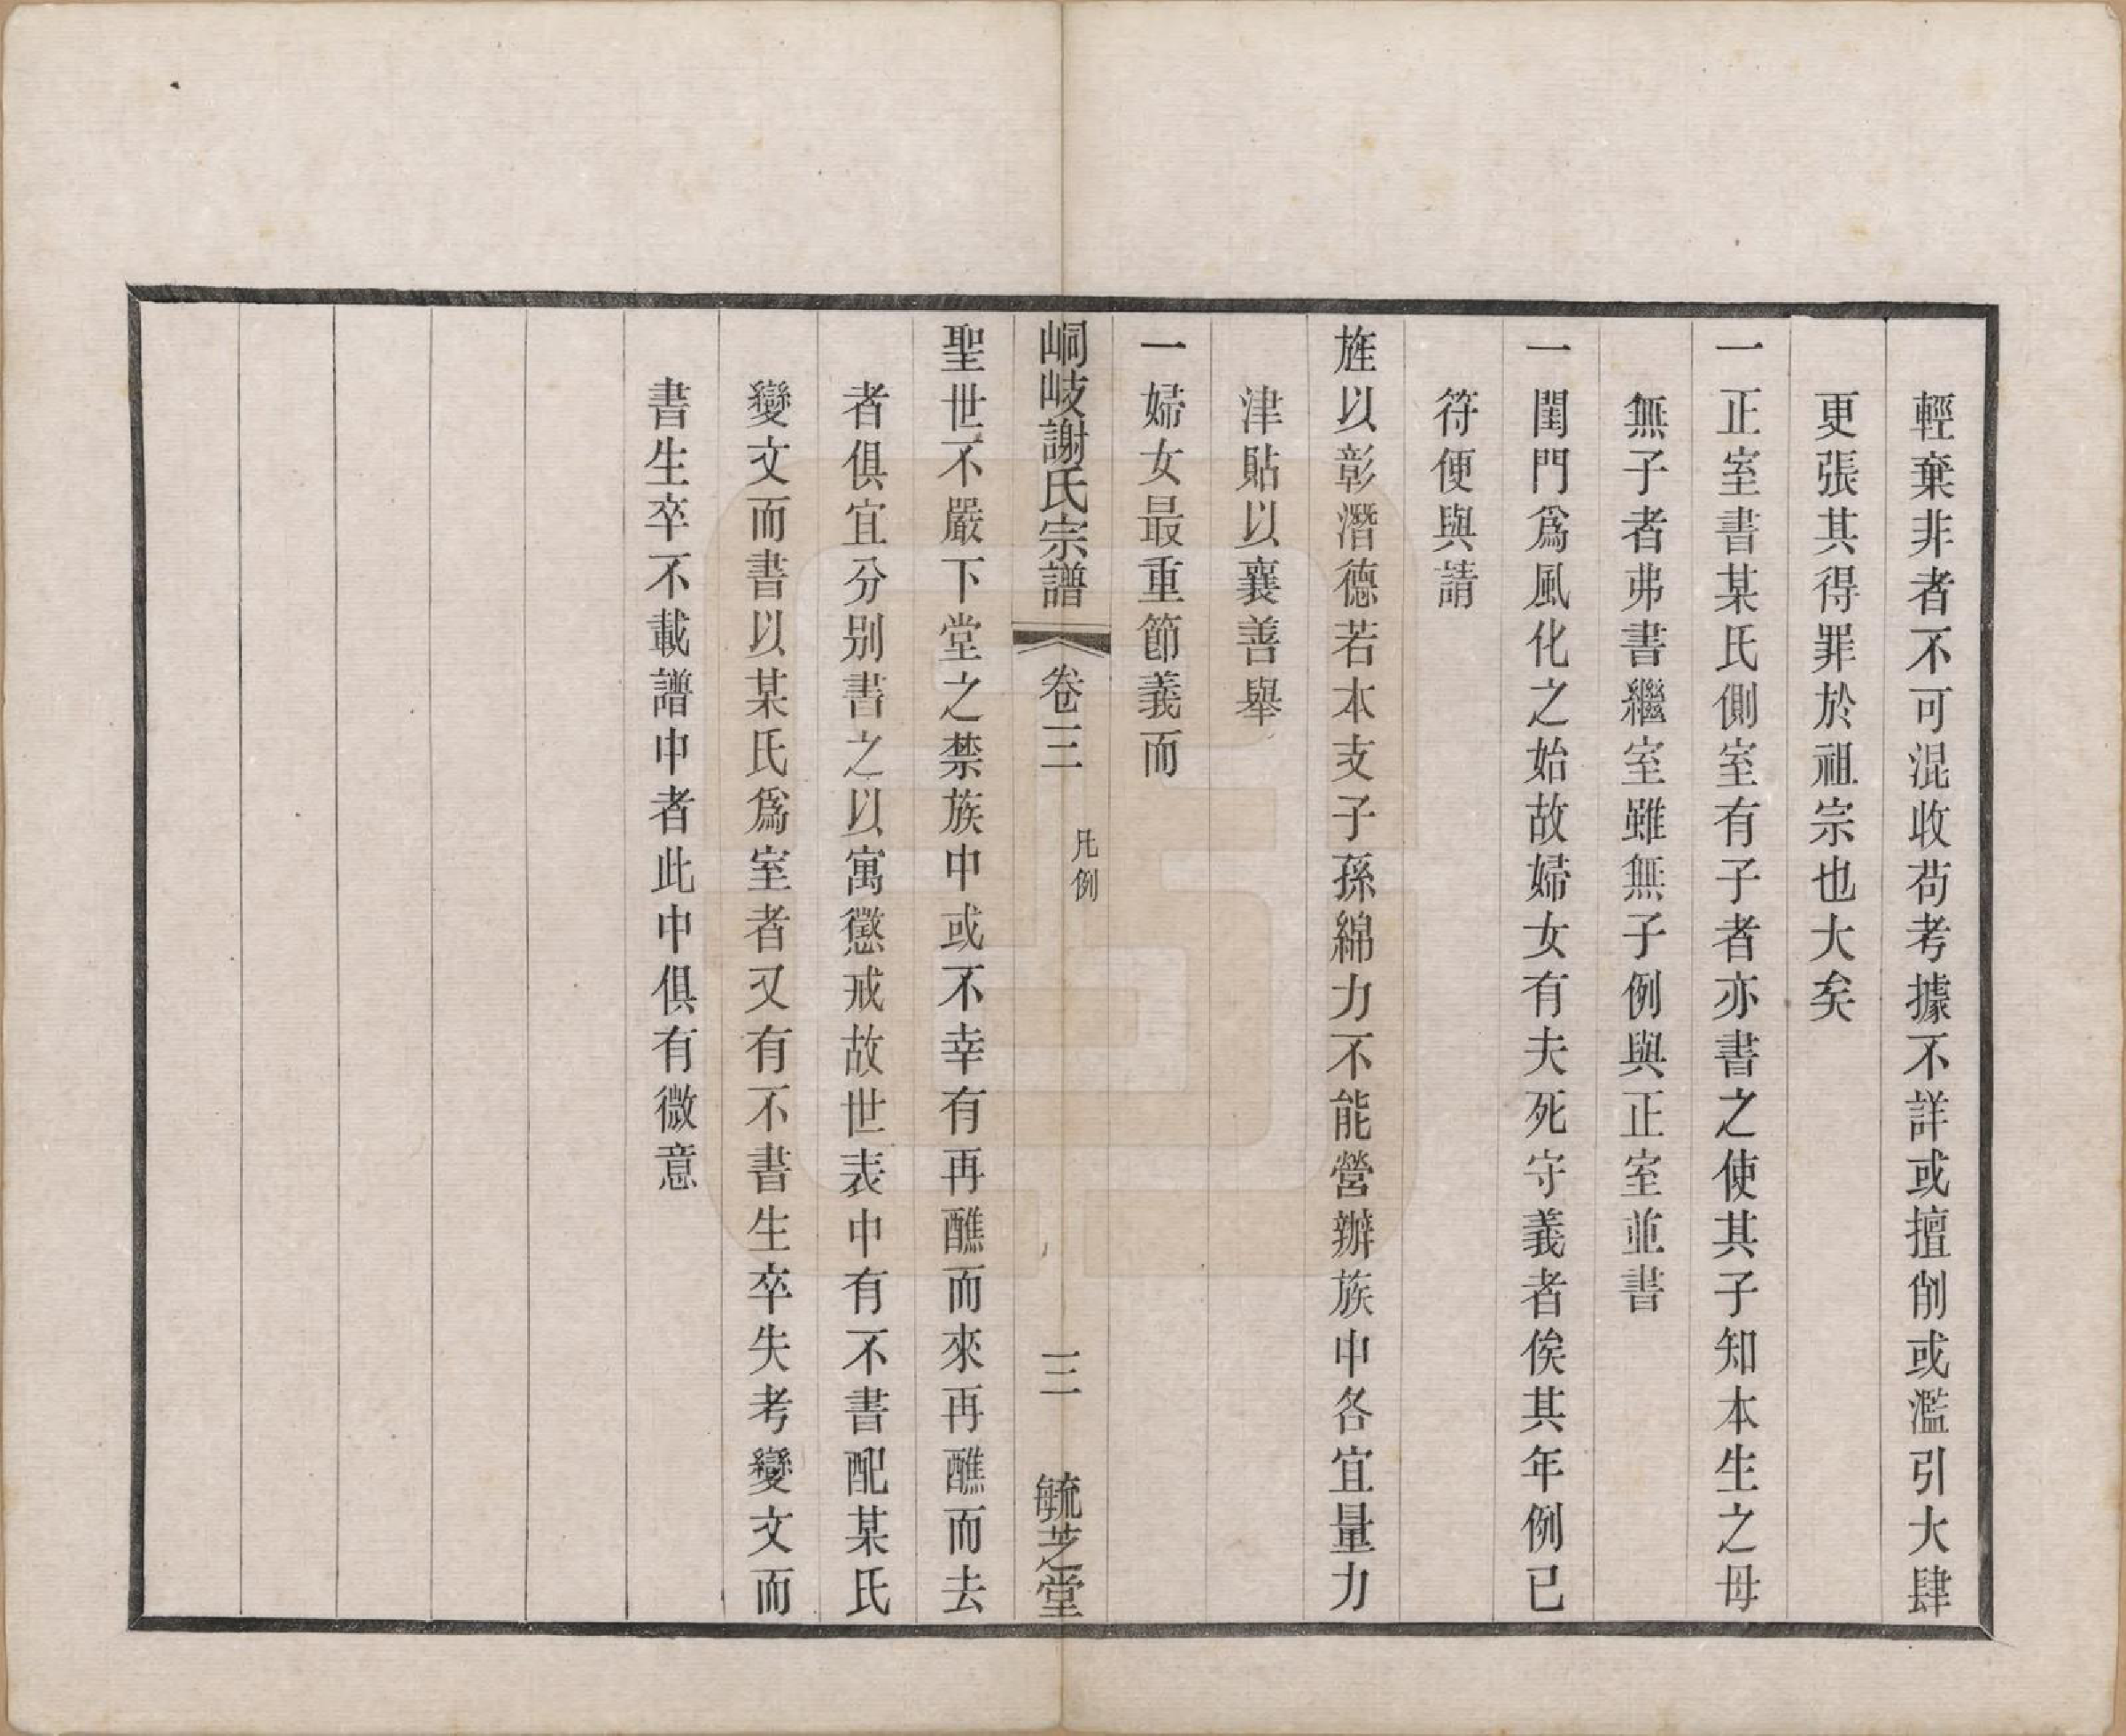 輕棄非者不可混收苟考據不詳或擅削或濫引大肆
更張其得罪於祖宗也大矣
一正室書某氏側室有子者亦書之使其子知本生之母
無子者弗書繼室雖無子例與正室並書
一閨門爲風化之始故婦女有夫死守義者俟其年例已
符便與請
旌以彰潛德若本支子孫綿力不能營辦族中各宜量力
津貼以襄善舉
一婦女最重節義而
峒岐謝氏宗譜 卷三 凡例 三 毓芝堂
聖世不嚴下堂之禁族中或不幸有再醮而來再醮而去
者俱宜分別書之以寓懲戒故世表中有不書配某氏
變文而書以某氏爲室者又有不書生卒失考變文而
書生卒不載譜中者此中俱有微意